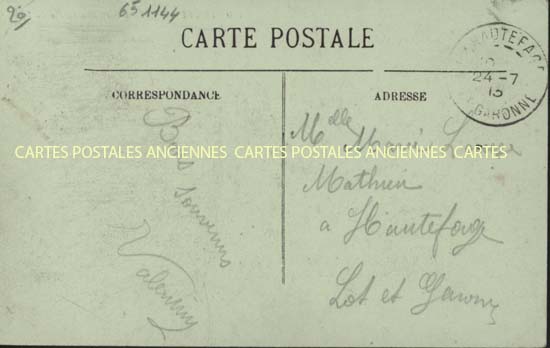 29
651144
CARTE POSTALE
HAUTEFAGE
24-7
13
GARONNE
CORRESPONDANCE
ADRESSE
Bons souvenirs
Mdlle Marie
Mathieu
a Hautefage
Lot et Garonne
CARTES POSTALES ANCIENNES CARTES POSTALES ANCIENNES CARTES